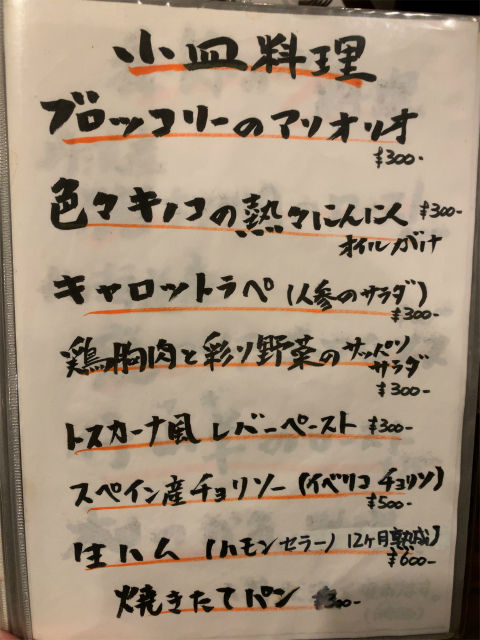 小皿料理
ブロッコリーのアリオリオ
¥300-
色々キノコの熱々にんにん ¥300-
オイルがけ
キャロットラペ (人参のサラダ)
¥300-
鶏胸肉と彩り野菜のサッパリ
サラダ
¥300-
トスカーナ風レバーペースト ¥300-
スペイン産チョリソー (イベリコチョリソ)
¥500-
生ハム (ハモンセラー) 12ヶ月熟成】
¥600-
焼きたてパン